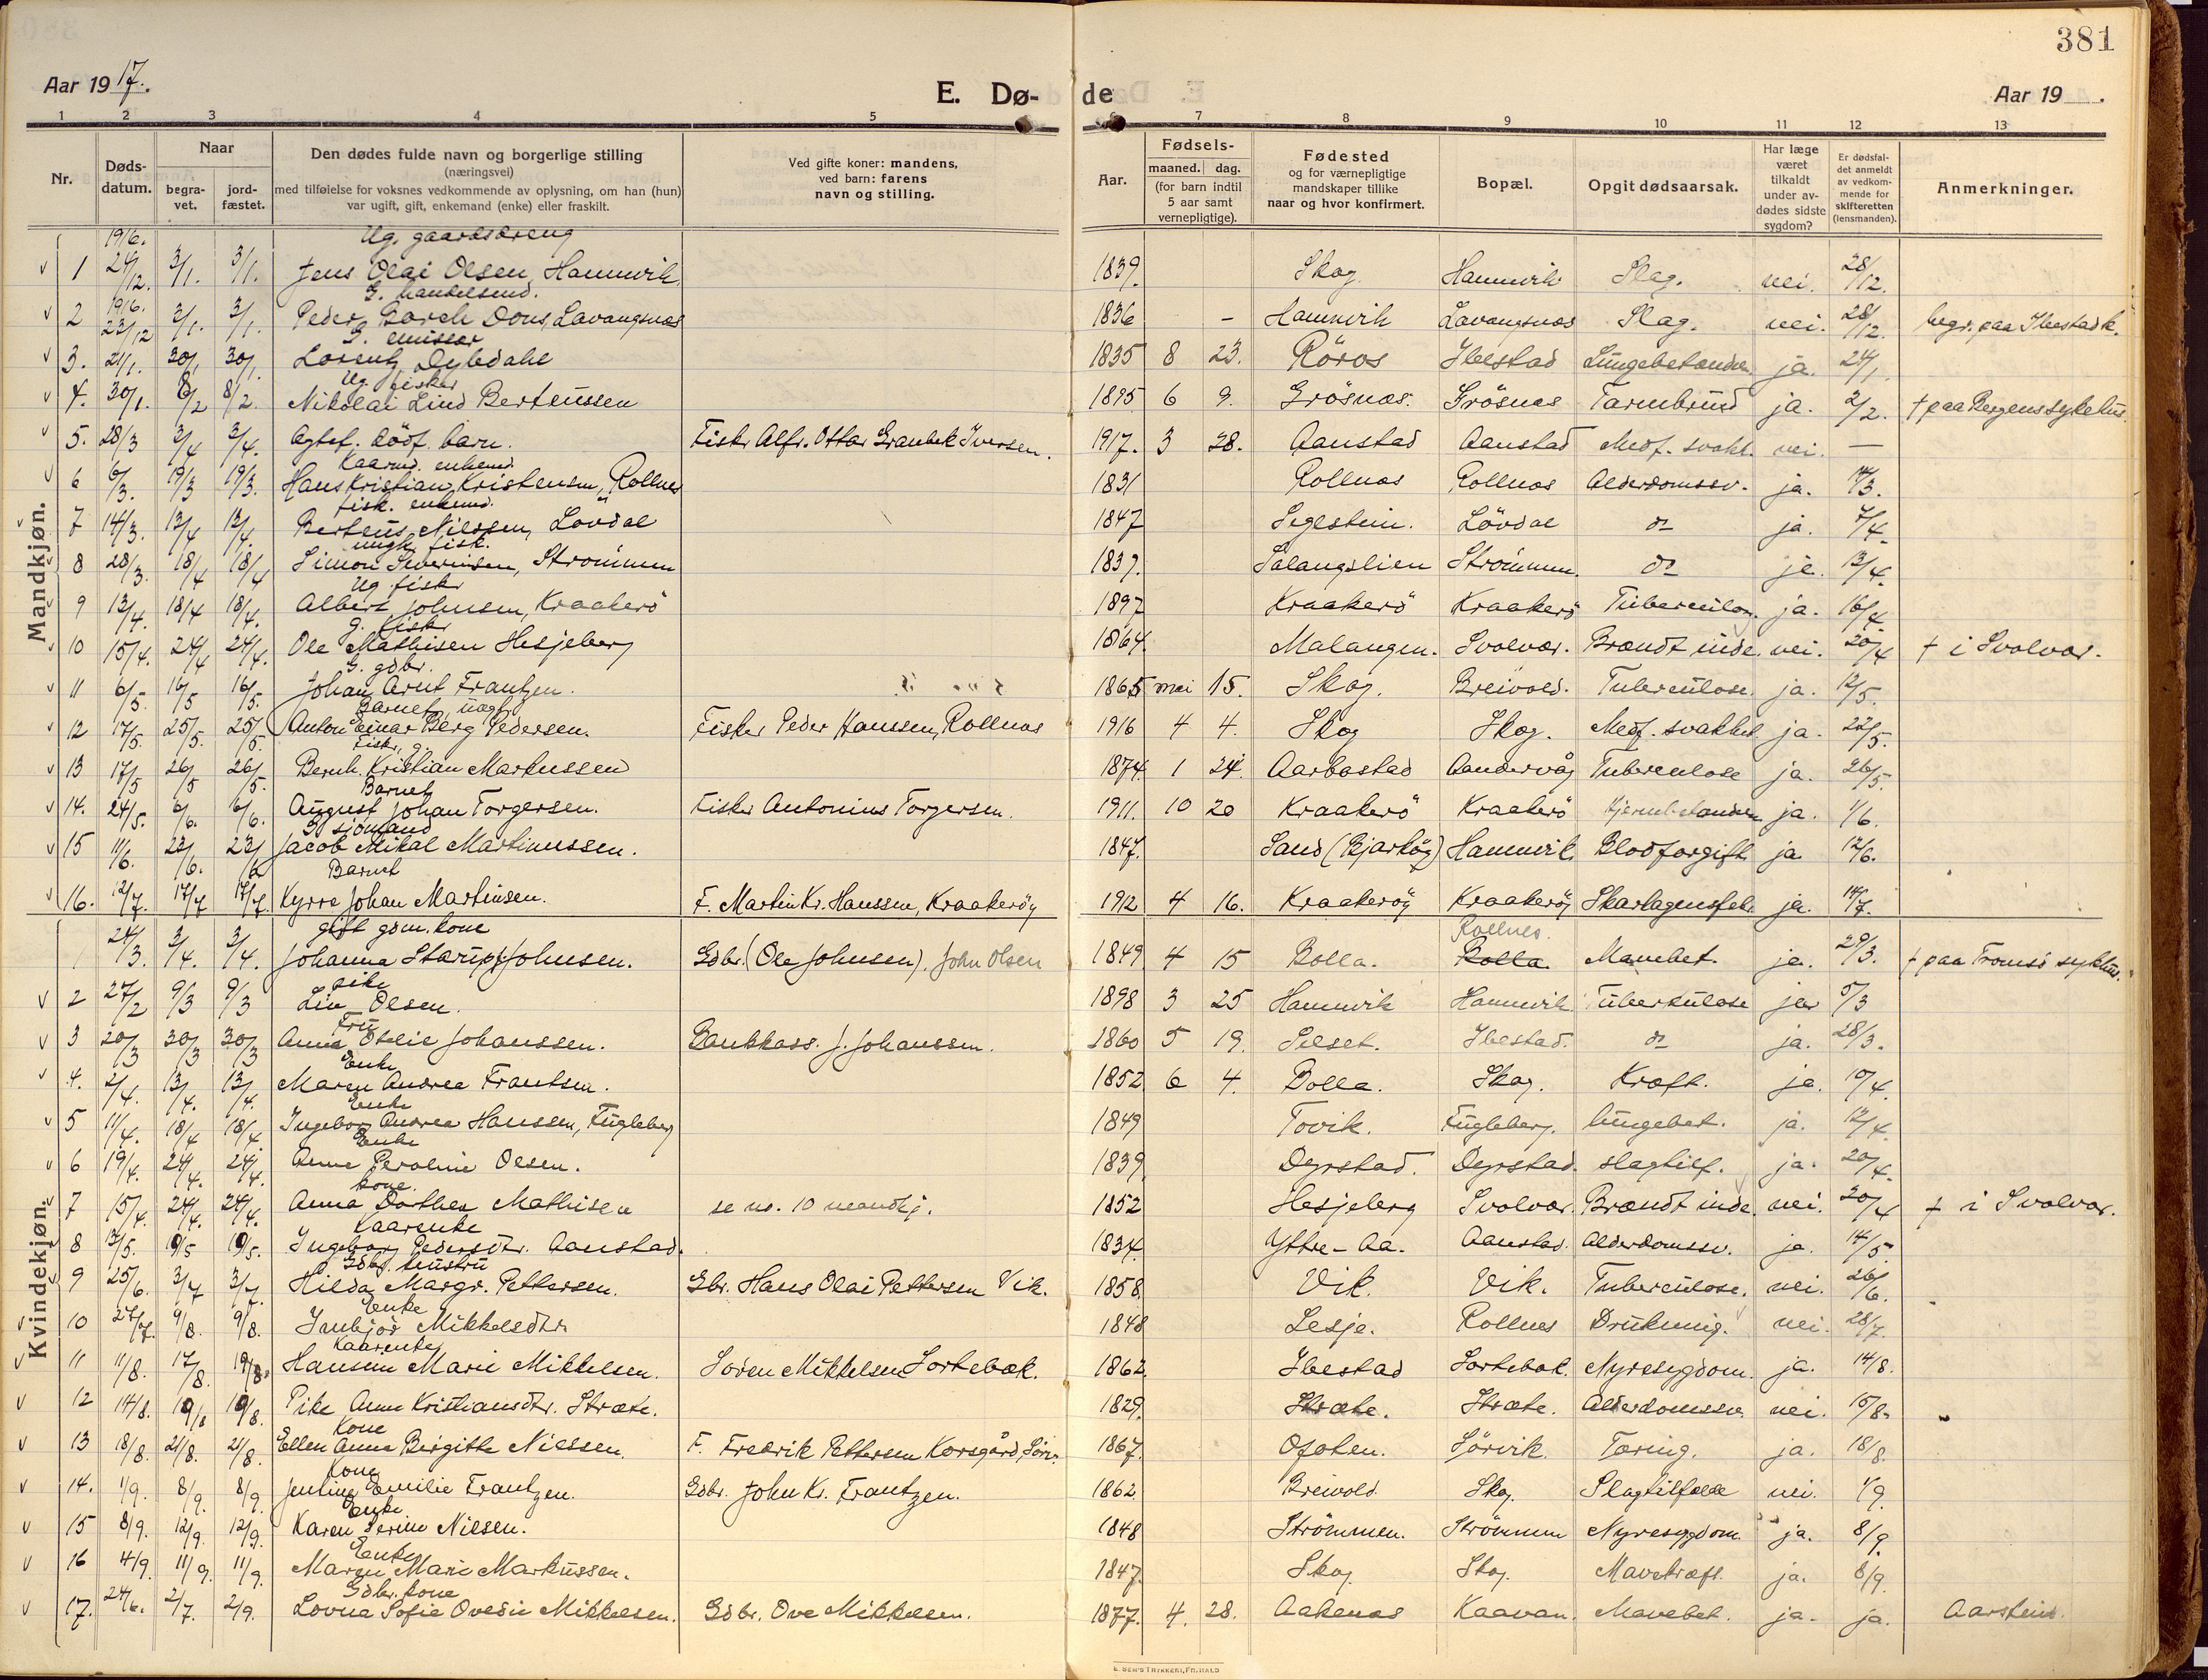 381
Aar 1917.
E. Dø- de
Aar 19 .
1 2 3 4 5 6 7 8 9 10 11 12 13
Nr.
Døds-datum.
Naar
begra-vet.
jord-fæstet.
Den dødes fulde navn og borgerlige stilling
(næringsvei)
med tilføielse for voksnes vedkommende av oplysning, om han (hun)
var ugift, gift, enkemand (enke) eller fraskilt.
Ved gifte koner: mandens,
ved barn: farens
navn og stilling.
Aar.
Fødsels-
maaned. dag.
(for barn indtil
5 aar samt
vernepligtige).
Fødested
og for værnepligtige
mandskaper tillike
naar og hvor konfirmert.
Bopæl.
Opgit dødsaarsak.
Har læge
været
tilkaldt
under av-
dødes sidste
sygdom?
Er dødsfal-
det anmeldt
av vedkom-
mende for
skifteretten
(lensmanden).
Anmerkninger.
Mandkjøn.
1916. Ug. gaardsdreng
1 24/12. 3/1. 3/1. Jens Olai Olsen, Hamnvik 1839. Skog Hamnvik Slag. nei. 28/12.
1916. G. handelsmd.
2 23/12 3/1. 3/1. Peder Borch Dons, Lavangsnæs 1836 - Hamnvik Lavangsnæs Slag. nei. 28/12. begr. paa Ibestad k.
G. emissær
3. 21/1. 30/1 30/1. Lorentz Dybdahl 1835 8 23. Röros Ibestad Lungebetændn. ja. 24/1.
Ug. fisker
4. 30/1. 8/2 8/2. Nikolai Lind Berteussen 1895 6 9. Grösnæs. Grösnæs Tarmbrudd ja. 2/2. † paa Bergens sykehus
5. 28/3 3/4 3/4. Agtef. dödf. barn. Fisker Alfr. Ottar Granbek Iversen. 1917. 3 28. Aanstad Aanstad Medf. svakh. nei. —
Kaarmd. enkemd.
6 6/3. 19/3 19/3. Hans Kristian Kristensen, Rollnes 1831 Rollnæs Rollnæs Alderdomssv. ja. 14/3.
fisk. enkemd.
7 14/3. 13/4 13/4. Berteus Nilssen, Lövdal 1847 Segelstein. Lövdal do ja. 7/4.
ungk. fisk.
8 28/3. 18/4 18/4 Simon Severinsen, Strömmen 1837. Salangslien Strömmen. do ja. 13/4.
Ug. fisker
9 13/4. 18/4 18/4. Albert Johnsen, Kraakerö 1897 Kraakerö Kraakerö Tuberculos. ja. 16/4
g. fisker
10 15/4. 24/4 24/4. Ole Mathisen Hesjeberg 1864. Malangen. Svolvær. Brændt inde. nei. 20/4 † i Svolvær.
G. gdbr.
11 6/5. 16/5 16/5. Johan Arnt Frantzen. 1865 mai 15. Skog. Breivold. Tuberculose. ja. 12/5.
Barnet
12 17/5. 25/5. 25/5. Anton Einar Berg Pedersen. Fisker Peder Hanssen, Rollnæs 1916 4 4. Skog Skog. Medf. svakhet ja. 22/5.
Fisker, g.
13 17/5 26/5 26/5. Bernh. Kristian Markussen 1874. 1 24. Aarbostad Aandervåg Tuberculose ja. 26/5.
Barnet
14. 24/5. 6/6. 6/6. August Johan Torgersen. Fisker Antonius Torgersen. 1911. 10 20 Kraakerö Kraakerö Hjernebetænden ja. 1/6.
G. sjömand
15 11/6. 23/6. 23/6 Jacob Mikal Martinussen. 1847. Sand (Bjarköy) Hamnvik Blodforgift. ja 12/6.
Barnet
16. 12/7. 17/7 17/7. Kyrre Johan Martinsen. F. Martin Kr. Hanssen, Kraakeröy 1912 4 16. Kraakeröy Kraakeröy Skarlagensfeb. ja. 14/7.
Kvindekjøn.
gift gdm. kone Rollnes.
1 24/3. 3/4. 3/4. Johanna Johnsen. Gdbr. (Ole Johnsen). John Olsen 1849 4 15 Bolla. Bolla. Mavebet. ja. 29/3. † paa Tromsö sykhus.
pike
2 27/2 9/3 9/3 Liv Olsen. 1898 3 25 Hamnvik Hamnvik Tuberkulose ja 5/3
Fru
3 20/3 30/3 30/3 Anna Otelie Johanssen. Bankkass. J. Johanssen. 1860 5 19. Selset. Ibestad. do ja. 28/3.
Enke
4. 2/4. 13/4. 13/4. Maren Andrea Frantsen. 1852 6 4. Bolla. Skog. Kræft. ja. 10/4.
Enke
5 11/4. 18/4 18/4. Ingeborg Andrea Hanssen, Fugleberg 1849 Tovik. Fugleberg. lungebet. ja. 12/4.
Enke
6 19/4. 24/4. 24/4. Anne Peroline Olsen. 1839 Dyrstad. Dyrstad. slagtilf. ja. 20/4.
kone.
7 15/4. 24/4. 24/4. Anna Dorthea Mathisen se no. 10 mandkj. 1852 Hesjeberg Svolvær. Brændt inde. nei. 20/4 † i Svolvær.
Kaarenke
8 13/5. 19/5 19/5. Ingeborg Pedersdtr. Aanstad. 1834. Yttre-Aa. Aanstad. Alderdomssv. ja. 14/5
Gdbr. hustru
9 25/6. 3/7 3/7. Hilda Margr. Pettersen. Gbr. Hans Olai Pettersen Vik. 1858. Vik. Vik. Tuberculose. nei. 26/6.
Enke
10 27/7. 9/8. 9/8. Innbjör Mikkelsdtr. 1848 Lesje. Rollnes Drukning. nei. 28/7.
Kaarenke
11 11/8. 17/8. 19/8. Hansine Marie Mikkelsen. Sören Mikkelsen Sortebæk. 1862. Ibestad Sortebæk. Nyresygdom. ja. 14/8.
12 14/8. 19/8 19/8. Pike Anne Kristiansdtr. Stræte. 1829. Stræte. Stræte. Alderdomssv. nei. 15/8.
Kone
13 18/8. 21/8. 21/8. Ellen Anna Birgitte Nilssen. F. Fredrik Pettersen Korsgård, Sörv. 1867. Ofoten. Sörvik. Tæring. ja. 18/8.
Kone
14. 1/9. 8/9. 8/9. Jentine Emilie Frantzen. Gdbr. John Kr. Frantzen. 1862. Breivold. Skog. Slagtilfælde nei. 1/9.
Enke
15 8/9. 12/9. 12/9. Karen Serine Nilsen. 1848 Strömmen. Strömmen Nyresygdom. ja. 8/9.
Enke
16 4/9. 11/9. 11/9. Maren Marie Markussen. 1847. Skog. Skog. Mavekræft. ja. 8/9.
Gdbr. kone
17. 24/6. 2/7. 2/9. Lovna Sofie Ovedie Mikkelsen. Gdbr. Ove Mikkelsen. 1877. 4. 28. Aakenæs Kaavan. Mavebet. ja. ja. Aarstein.